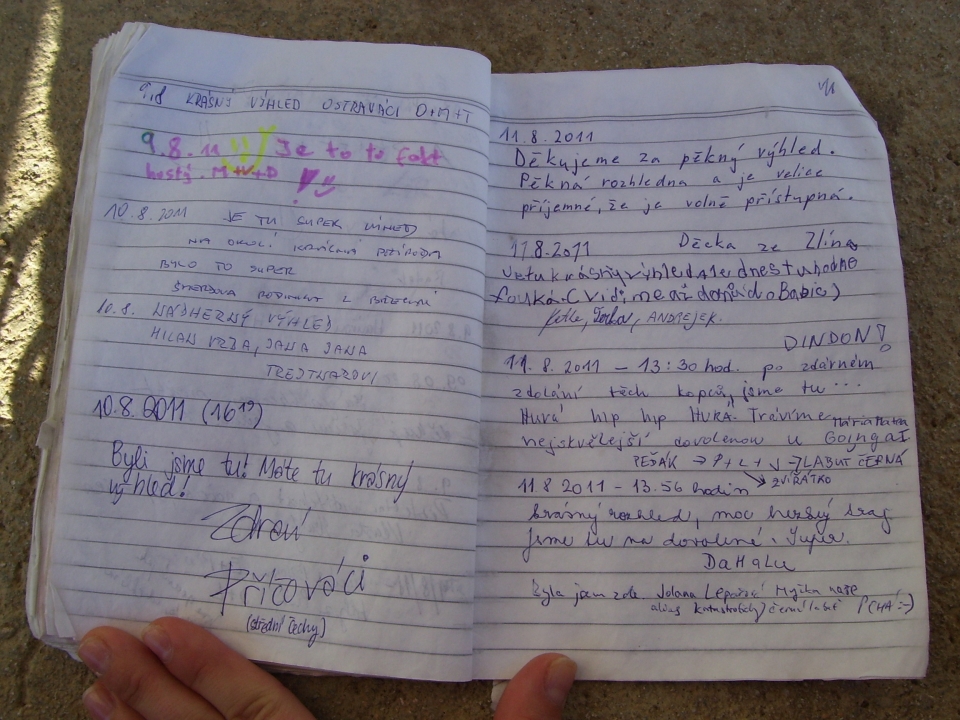 9.8 KRÁSNÝ VÝHLED OSTRAVÁCI D+M+T
9.8.11 !!! Je to tu fakt
hestý. M+V+D
10.8.2011 JE TU SUPER VÝHLED
NA OKOLÍ
BYLO TO SUPER
10.8. NÁDHERNÝ VÝHLED
MILAN JANA JANA
TREJTNAROVI
10.8.2011 (16¹⁹)
Byli jsme tu! Máte tu krásný
výhled!
Zdraví
Příčováci
(střední Čechy)
11
11.8.2011
Děkujeme za pěkný výhled.
Pěkná rozhledna a je velice
příjemné, že je volně přístupná.
11.8.2011 Děcka ze Zlína
Je tu krásný výhled ale dnes tu hodně
fouká. (Vidíme až domů do Babic)
ANDREJEK.
DINDON!
11.8.2011 – 13:30 hod. po zdárném
zdolání těch kopců, jsme tu ...
Hurá hip hip HURÁ. Trávíme
nejskvělejší dovolenou u
PEŠÁK → P + L + V → LABUŤ ČERNÁ
ZVÍŘÁTKO
11.8 2011 – 13.56 hodin
krásný rozhled, moc hezký kraj
jsme tu na dovolené. Jupíí.
DaHaLu
Byla jsem zde Jolana naše
alias katastrofický černá labuť P(HÁ :-)